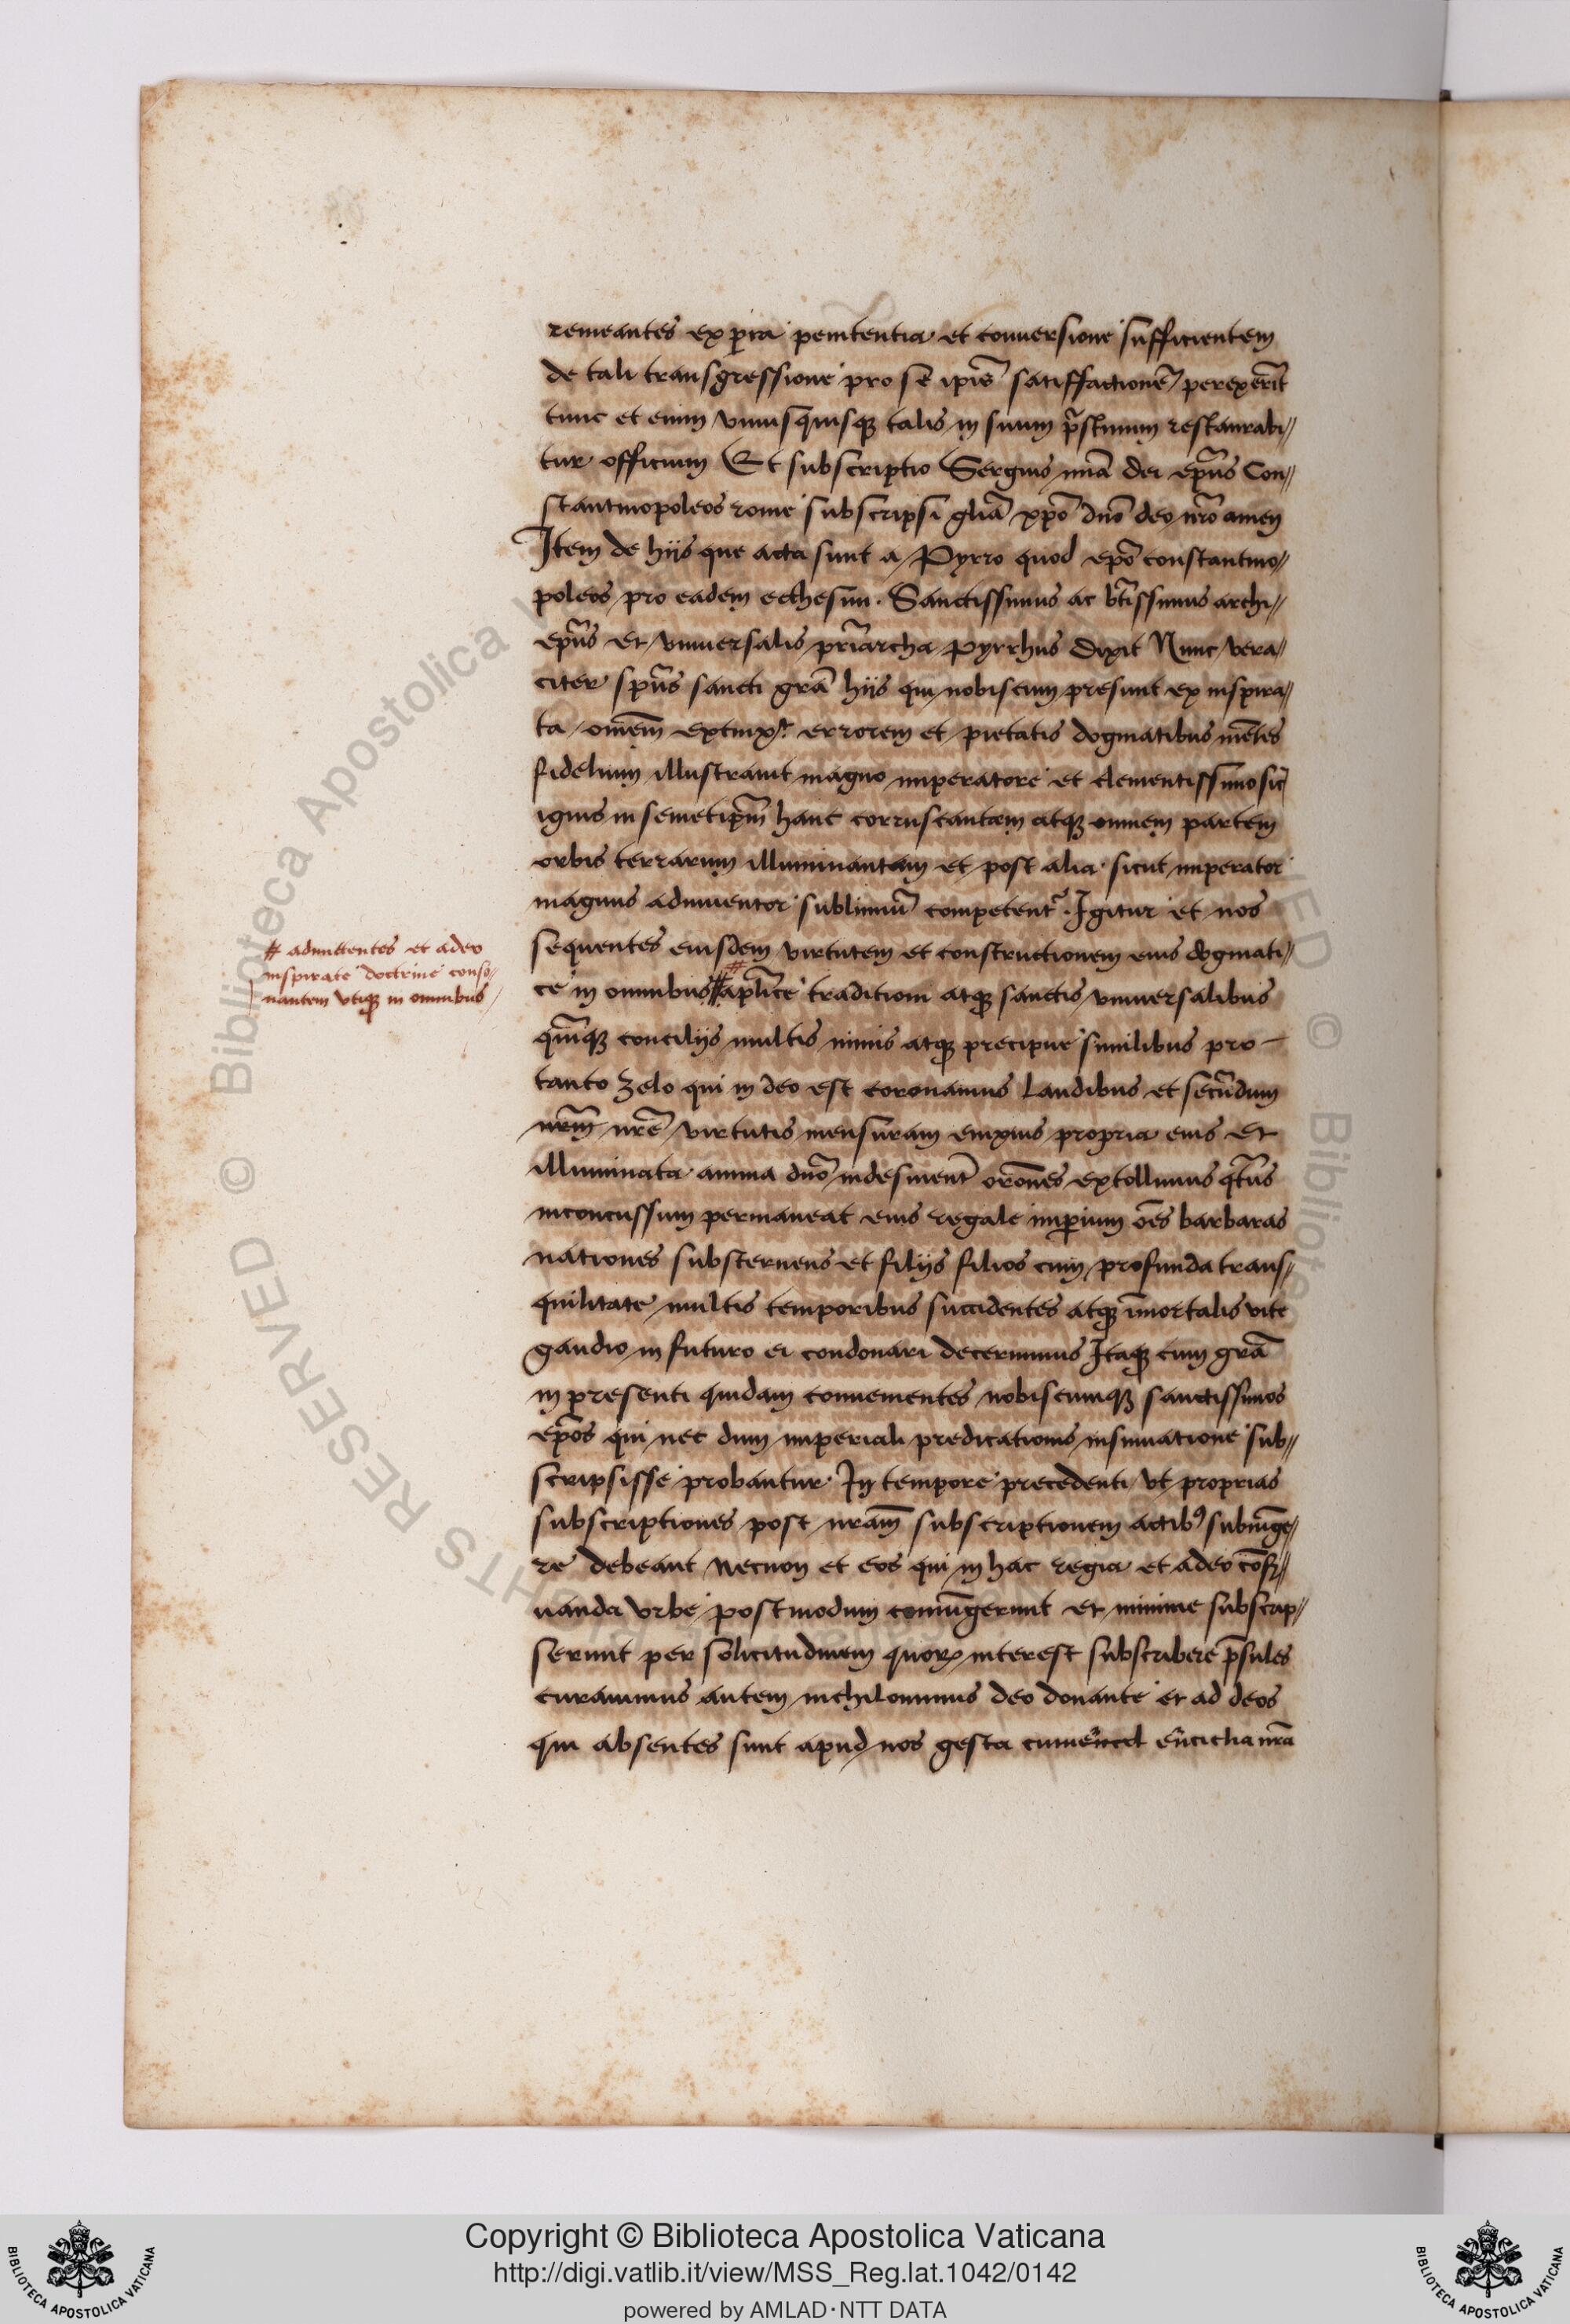 remeantes ex pria penitentia et conuersione sufficientem
de tali transgressione pro se ipis satisfactione perexerit
tunc et enim vnusquisque talis in suum pristinum restaurabi//
tur officium Et subscriptio Sergius mia dei epus Con//
stantinopoleos rome subscripsi glia xpo dno deo nro amen
Item de hijs que acta sunt a Pyrro quod epo constantino//
poleos pro eadem ecthesim. Sanctissimus ac btissimus archi//
epus et vniuersalis priarcha Pyrrhus dixit Nunc vera//
citer spus sancti gra hijs qui nobiscum presunt ex inspira//
ta omem extinx errorem et pietatis dogmatibus metes
fidelium illustrauit magno imperatore et clementissimo sic
ignis in semetipm hanc corruscantam atque omnem partem
orbis terrarum illuminantam et post alia sicut imperator
magnus adinuentor sublimiu competent. Igitur et nos
sequentes eiusdem virtutem et constructionem eius dogmati//
# admittentes et adeo
inspirate doctrine conso//
nantem vtique in omnibus
ce in omnibus # aplice traditioni atque sanctis vniuersalibus
quinque concilijs multis nimis atque precipue similibus pro
tanto zelo qui in deo est coronamus laudibus et secundum
nrm nre virtutis mensuram eius propria eius et
illuminata anima dno indesinent orones extollimus qtus
inconcussum permaneat eius regale imperium oes barbaras
nationes substernens et filijs filios cum profunda trans//
quilitate multis temporibus succidentes atque imortalis vite
gaudio in futuro ei condonari decernimus Itaque cum gra
in presenti quidam conuenientes nobiscumque sanctissimos
epos qui nec dum imperiali predicationis insinuatione sub//
scripsisse probantur In tempore precedenti vt proprias
subscriptiones post nram subscriptionem actibus subiuge//
re debeant necnon et eos qui in hac regia et adeo coser//
uanda vrbe postmodum coniungerunt et minime subscrip//
serunt per solicitudinem quorum interest subscribere psules
curauimus autem nichilominus deo donante et ad deos
qui absentes sunt apud nos gesta cum enciclia nra
Copyright © Biblioteca Apostolica Vaticana
http://digi.vatlib.it/view/MSS_Reg.lat.1042/0142
powered by AMLAD·NTT DATA
BIBLIOTECA APOSTOLICA VATICANA
BIBLIOTECA APOSTOLICA VATICANA